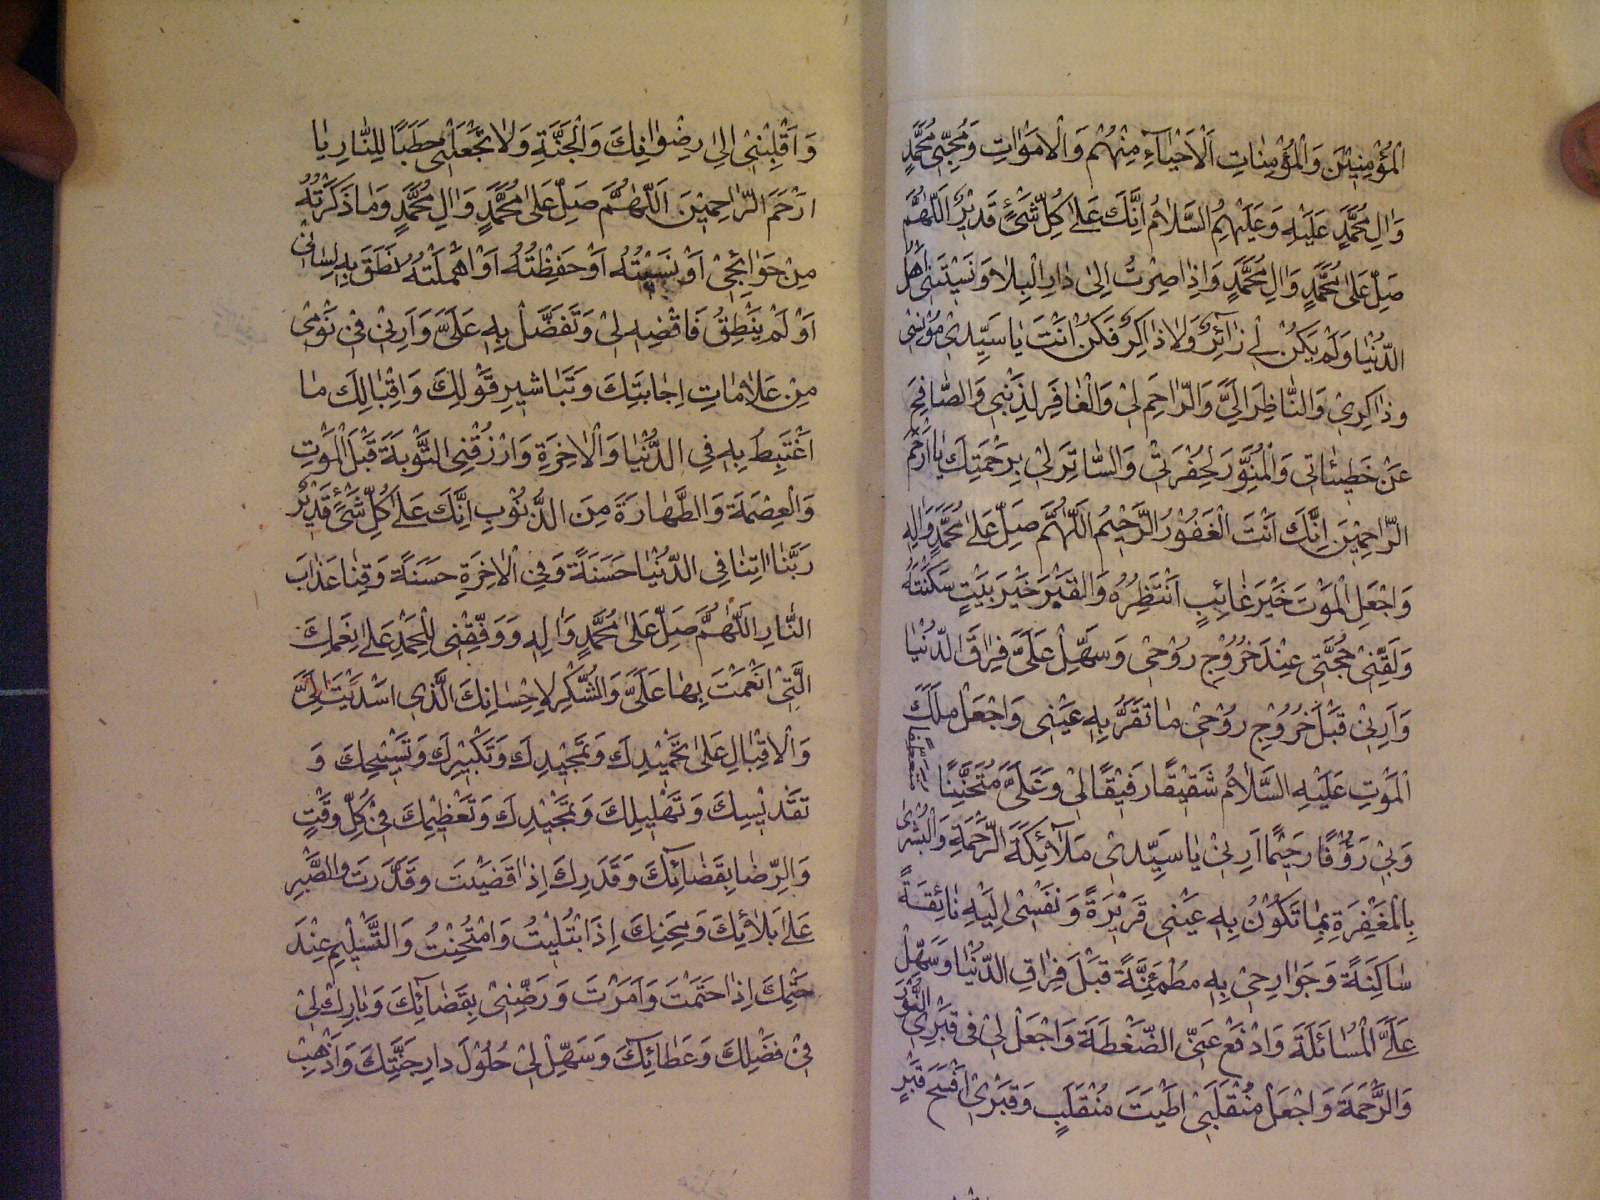 الْمُؤْمِنِيْنَ وَالْمُؤْمِنَاتِ اَلْاَحْيَاءِ مِنْهُمْ وَالْاَمْوَاتِ وَمُحِبِّيْ مُحَمَّدٍ
وَالِ مُحَمَّدٍ عَلَيْهِ وَعَلَيْهِمُ السَّلَامُ اِنَّكَ عَلٰى كُلِّ شَيْءٍ قَدِيْرٌ اَللّٰهُمَّ
صَلِّ عَلٰى مُحَمَّدٍ وَالِ مُحَمَّدٍ وَاِذَا صِرْتُ اِلٰى دَارِ الْبِلَا وَنَسِيَتْنِيْ اَهْلُ
الدُّنْيَا وَلَمْ يَكُنْ لِيْ زَائِرٌ وَلَا ذَاكِرٌ فَكُنْ اَنْتَ يَا سَيِّدِيْ مُوْنِسِيْ
وَذَاكِرِيْ وَالنَّاظِرَ اِلَيَّ وَالرَّاحِمَ لِيْ وَالْغَافِرَ لِذَنْبِيْ وَالصَّافِحَ
عَنْ خَطِيْئَاتِيْ وَالْمُنَوِّرَ لِحُفْرَتِيْ وَالسَّاتِرَ لِيْ بِرَحْمَتِكَ يَا اَرْحَمَ
الرَّاحِمِيْنَ اِنَّكَ اَنْتَ الْغَفُوْرُ الرَّحِيْمُ اَللّٰهُمَّ صَلِّ عَلٰى مُحَمَّدٍ وَالِهِ
وَاجْعَلِ الْمَوْتَ خَيْرَ غَائِبٍ اَنْتَظِرُهُ وَالْقَبْرَ خَيْرَ بَيْتٍ سَكَنْتُهُ
وَلَقِّنِّيْ حُجَّتِيْ عِنْدَ خُرُوْجِ رُوْحِيْ وَسَهِّلْ عَلَيَّ فِرَاقَ الدُّنْيَا
وَاَرِنِيْ قَبْلَ خُرُوْجِ رُوْحِيْ مَا تَقَرُّ بِهِ عَيْنِيْ وَاجْعَلْ مَلَكَ
الْمَوْتِ عَلَيْهِ السَّلَامُ شَفِيْقًا رَفِيْقًا لِيْ وَعَلَيَّ مُتَحَنِّنًا مُتَعَطِّفًا
وَبِيْ رَؤُفًا رَحِيْمًا اَرِنِيْ يَا سَيِّدِيْ مَلَائِكَةَ الرَّحْمَةِ وَالْبُشْرٰى
بِالْمَغْفِرَةِ بِمَا تَكُوْنُ بِهِ عَيْنِيْ قَرِيْرَةً وَنَفْسِيْ اِلَيْهِ تَائِقَةً
سَاكِنَةً وَجَوَارِحِيْ بِهِ مُطْمَئِنَّةً قَبْلَ فِرَاقِ الدُّنْيَا وَسَهِّلْ
عَلَيَّ الْمُسَائَلَةَ وَادْفَعْ عَنِّي الضَّغْطَةَ وَاجْعَلْ لِيْ فِيْ قَبْرِيَ النُّوْرَ
وَالرَّحْمَةَ وَاجْعَلْ مُنْقَلَبِيْ اَطْيَبَ مُنْقَلَبٍ وَقَبْرِيْ اَفْسَحَ قَبْرٍ
وَاَقْلِبْنِيْ اِلٰى رِضْوَانِكَ وَالْجَنَّةِ وَلَا تَجْعَلْنِيْ حَطَبًا لِلنَّارِ يَا
اَرْحَمَ الرَّاحِمِيْنَ اَللّٰهُمَّ صَلِّ عَلٰى مُحَمَّدٍ وَالِ مُحَمَّدٍ وَمَا ذَكَرْتُهُ
مِنْ حَوَائِجِيْ اَوْ نَسِيْتُهُ اَوْ حَفِظْتُهُ اَوْ اَهْمَلْتُهُ نَطَقَ بِهِ لِسَانِيْ
اَوْ لَمْ يَنْطِقْ فَاقْضِهِ لِيْ وَتَفَضَّلْ بِهِ عَلَيَّ وَاَرِنِيْ فِيْ نَوْمِيْ
مِنْ عَلَامَاتِ اِجَابَتِكَ وَتَبَاشِيْرِ قَوْلِكَ وَاِقْبَالِكَ مَا
اَغْتَبِطُ بِهِ فِي الدُّنْيَا وَالْاٰخِرَةِ وَارْزُقْنِي التَّوْبَةَ قَبْلَ الْمَوْتِ
وَالْعِصْمَةَ وَالطَّهَارَةَ مِنَ الذُّنُوْبِ اِنَّكَ عَلٰى كُلِّ شَيْءٍ قَدِيْرٌ
رَبَّنَا اٰتِنَا فِي الدُّنْيَا حَسَنَةً وَفِي الْاٰخِرَةِ حَسَنَةً وَقِنَا عَذَابَ
النَّارِ اَللّٰهُمَّ صَلِّ عَلٰى مُحَمَّدٍ وَالِهِ وَوَفِّقْنِيْ لِلْحَمْدِ عَلٰى نِعَمِكَ
الَّتِيْ اَنْعَمْتَ بِهَا عَلَيَّ وَالشُّكْرِ لِاِحْسَانِكَ الَّذِيْ اَسْدَيْتَ اِلَيَّ
وَالْاِقْبَالِ عَلٰى تَحْمِيْدِكَ وَتَمْجِيْدِكَ وَتَكْبِيْرِكَ وَتَسْبِيْحِكَ وَ
تَقْدِيْسِكَ وَتَهْلِيْلِكَ وَتَمْجِيْدِكَ وَتَعْظِيْمِكَ فِيْ كُلِّ وَقْتٍ
وَالرِّضَا بِقَضَائِكَ وَقَدَرِكَ اِذَا قَضَيْتَ وَقَدَّرْتَ وَالصَّبْرِ
عَلٰى بَلَائِكَ وَمِحَنِكَ اِذَا ابْتُلِيْتُ وَامْتُحِنْتُ وَالتَّسْلِيْمِ عِنْدَ
حَتْمِكَ اِذَا حَتَمْتَ وَاَمَرْتَ وَرَضِّنِيْ بِقَضَائِكَ وَبَارِكْ لِيْ
فِيْ فَضْلِكَ وَعَطَائِكَ وَسَهِّلْ لِيْ حُلُوْلَ دَارِ جَنَّتِكَ وَاَذْهِبْ